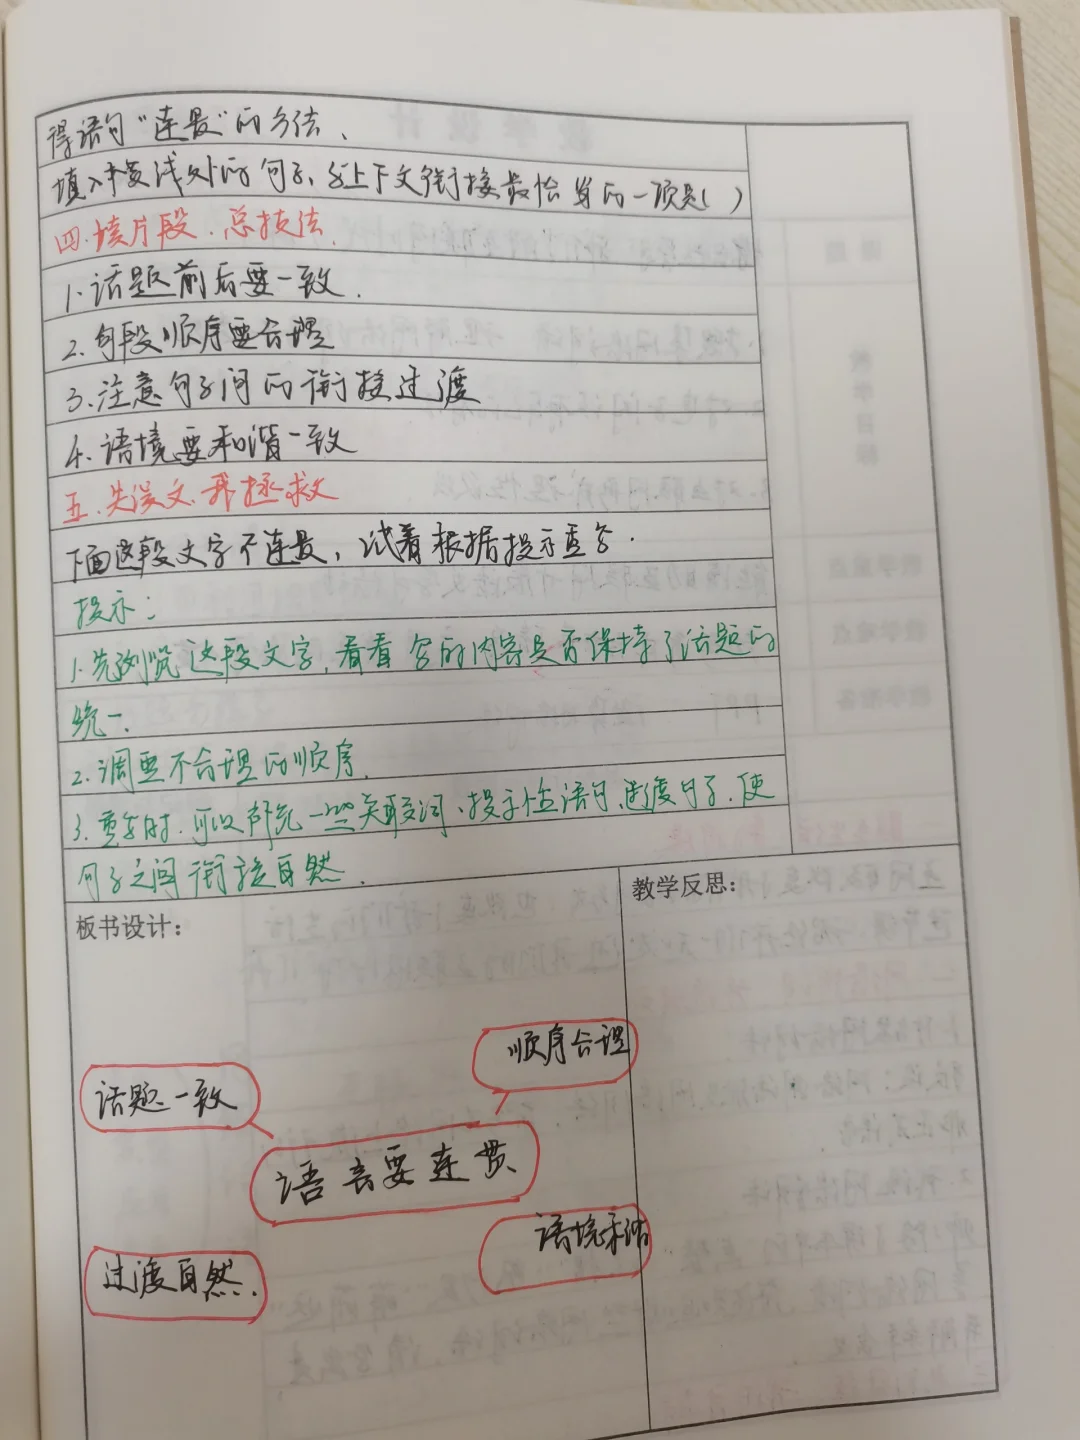 得语句“连贯”的方法.
填入横线处的句子,与上下文衔接最恰当的一项是( )
四.读片段.总技法.
1.话题前后要一致.
2.句段顺序要合理
3.注意句子间的衔接过渡
4.语境要和谐一致
五.失误文.我拯救
下面这段文字不连贯,试着根据提示重写.
提示:
1.先浏览这段文字,看看写的内容是否保持了话题的
统一.
2.调整不合理的顺序.
3.重写时.可以补充一些关联词、提示性语句、过渡句子.使
句子之间衔接自然.
板书设计:
教学反思:
顺序合理
话题一致
语言要连贯
语境和谐
过渡自然.